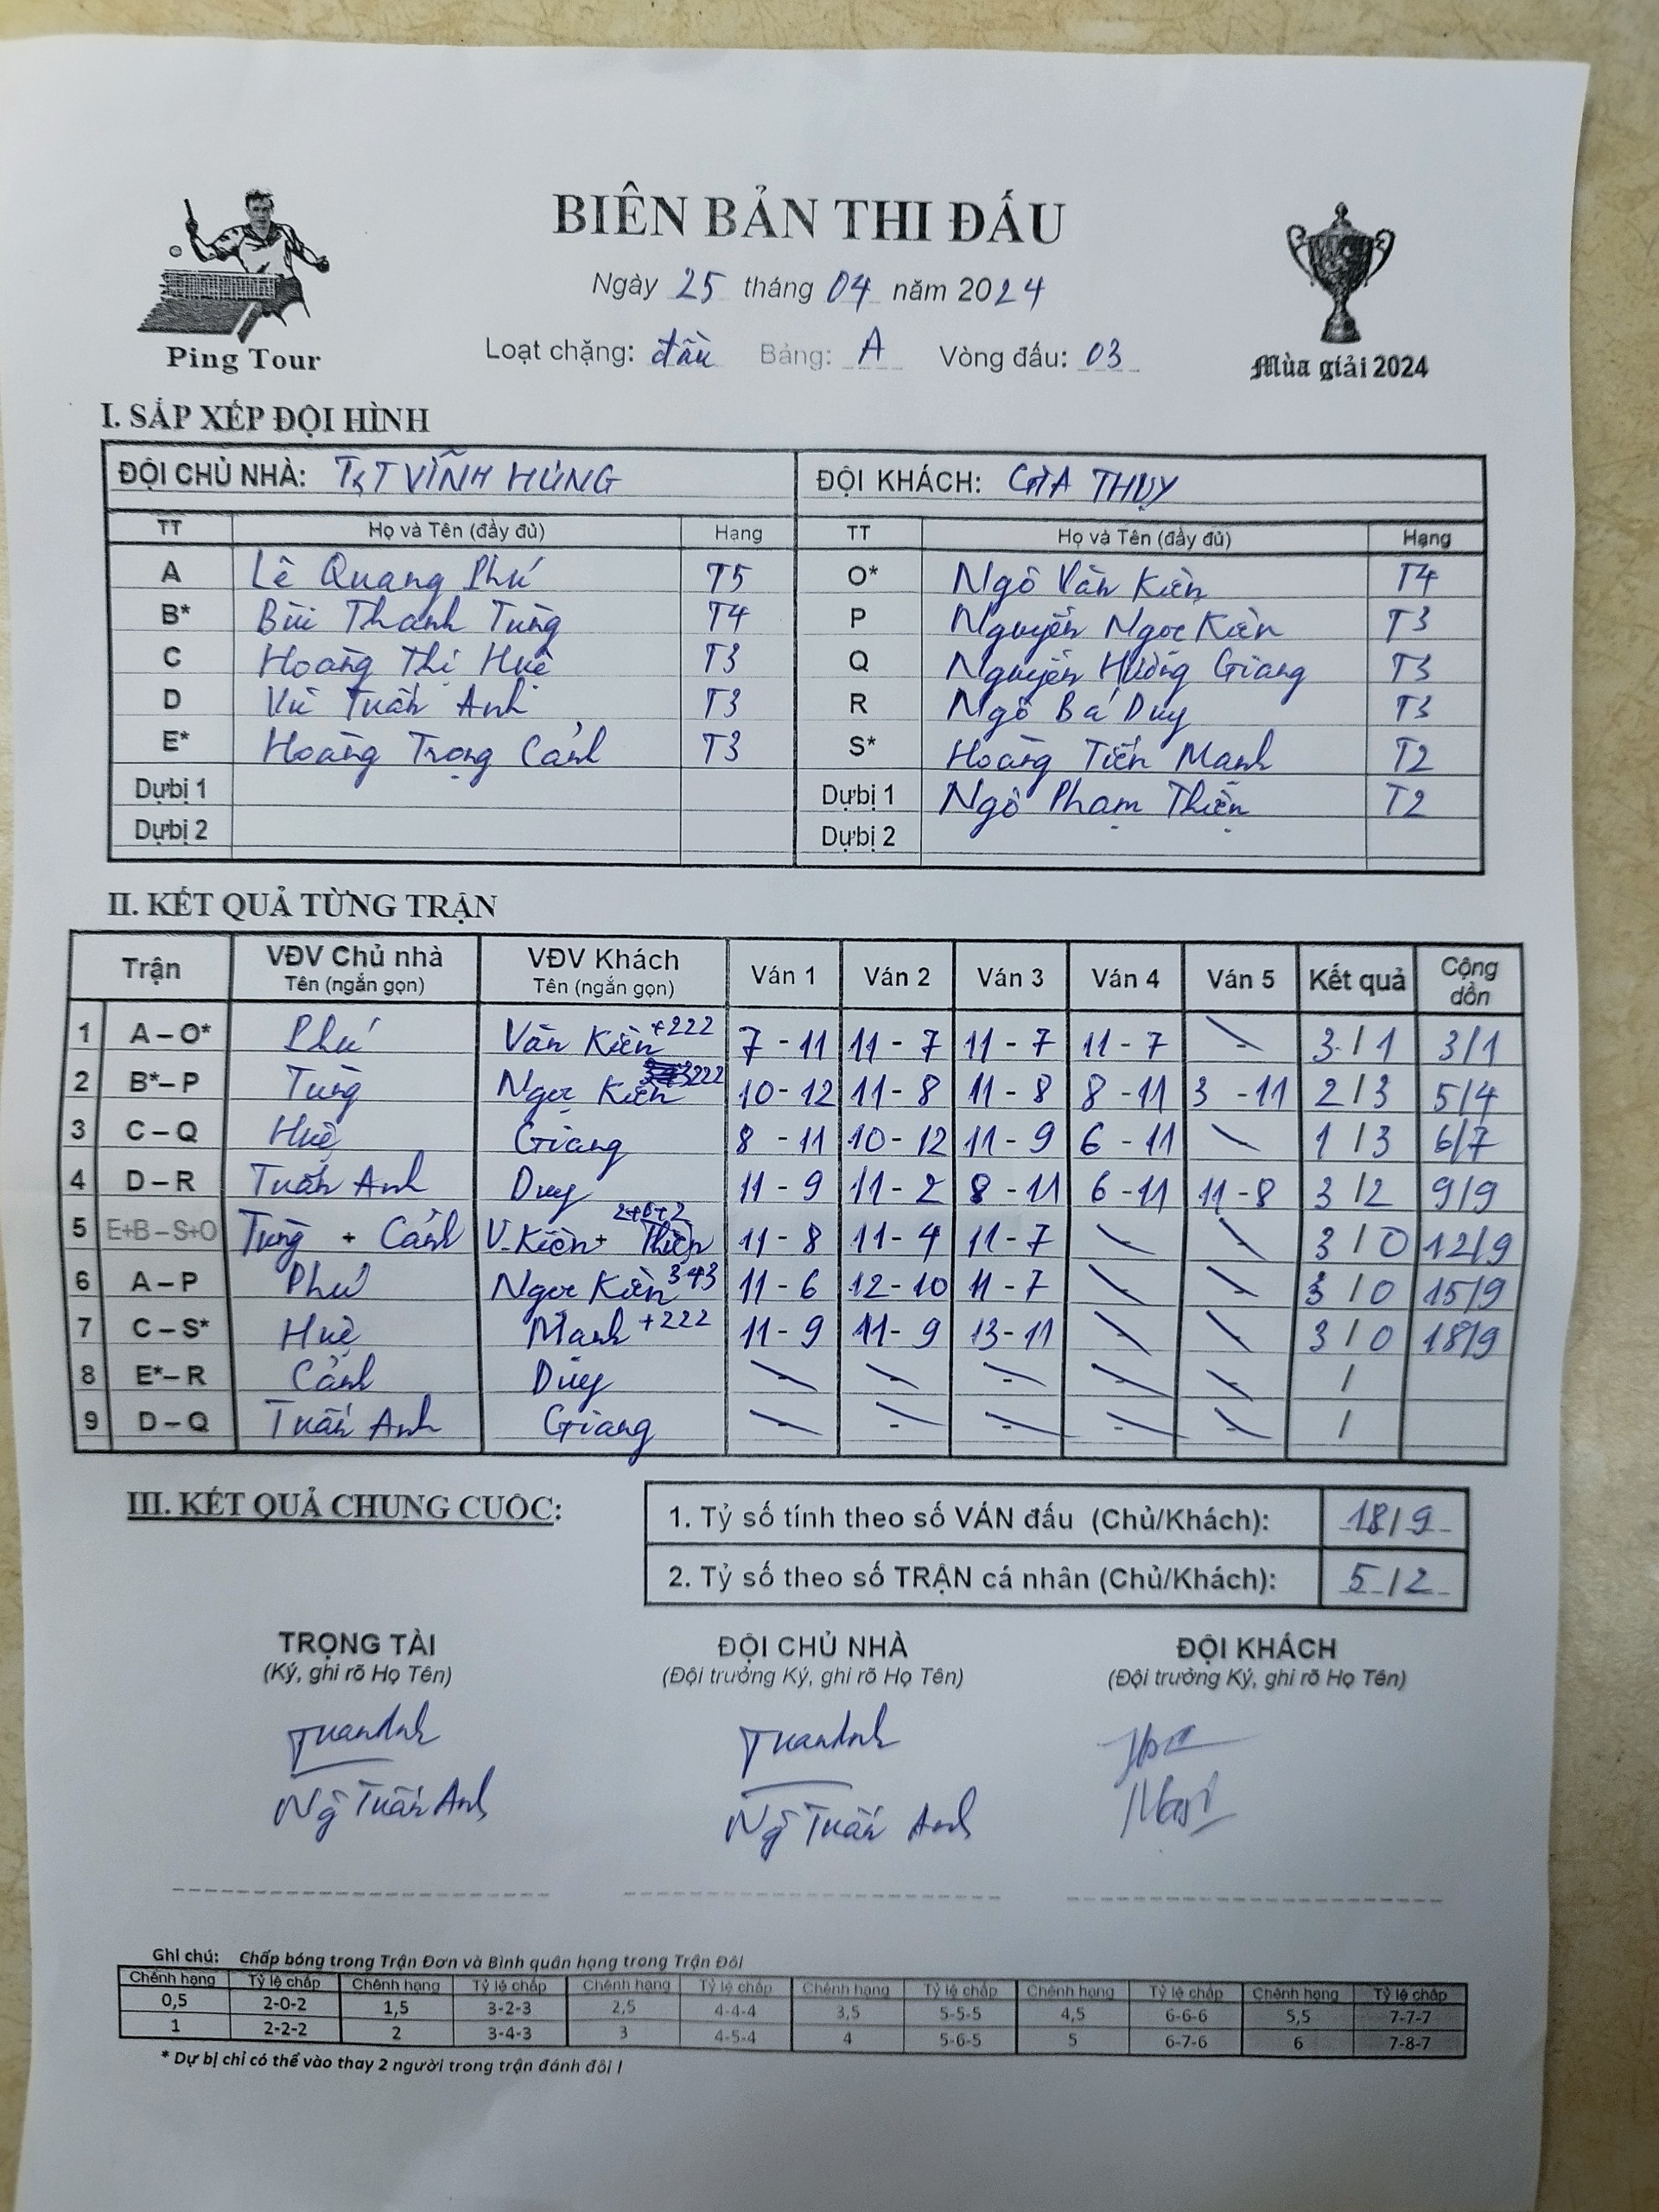 BIÊN BẢN THI ĐẤU
Ngày 25 tháng 04 năm 2024
Ping Tour
Loạt chặng: đầu Bảng: A Vòng đấu: 03
Mùa giải 2024
I. SẮP XẾP ĐỘI HÌNH
ĐỘI CHỦ NHÀ: T&T VĨNH HƯNG ĐỘI KHÁCH: GIA THỤY
TT Họ và Tên (đầy đủ) Hạng TT Họ và Tên (đầy đủ) Hạng
A Lê Quang Phú T5 O* Ngô Văn Kiên T4
B* Bùi Thanh Tùng T4 P Nguyễn Ngọc Kiên T3
C Hoàng Thị Huệ T3 Q Nguyễn Hương Giang T3
D Vũ Tuấn Anh T3 R Ngô Bá Duy T3
E* Hoàng Trọng Cảnh T3 S* Hoàng Tiến Mạnh T2
Dự bị 1 Dự bị 1 Ngô Phạm Thiện T2
Dự bị 2 Dự bị 2
II. KẾT QUẢ TỪNG TRẬN
Trận VĐV Chủ nhà Tên (ngắn gọn) VĐV Khách Tên (ngắn gọn) Ván 1 Ván 2 Ván 3 Ván 4 Ván 5 Kết quả Cộng dồn
1 A – O* Phú Văn Kiên +222 7 - 11 11 - 7 11 - 7 11 - 7 - 3 / 1 3/1
2 B* – P Tùng Ngọc Kiên 222 10 - 12 11 - 8 11 - 8 8 - 11 3 - 11 2 / 3 5/4
3 C – Q Huệ Giang 8 - 11 10 - 12 11 - 9 6 - 11 - 1 / 3 6/7
4 D – R Tuấn Anh Duy 11 - 9 11 - 2 8 - 11 6 - 11 11 - 8 3 / 2 9/9
5 E+B – S+O Tùng + Cảnh V.Kiên + Thiện 2+0+2 11 - 8 11 - 4 11 - 7 - - 3 / 0 12/9
6 A – P Phú Ngọc Kiên 343 11 - 6 12 - 10 11 - 7 - - 3 / 0 15/9
7 C – S* Huệ Mạnh +222 11 - 9 11 - 9 13 - 11 - - 3 / 0 18/9
8 E* – R Cảnh Duy - - - - - /
9 D – Q Tuấn Anh Giang - - - - - /
III. KẾT QUẢ CHUNG CUỘC:
1. Tỷ số tính theo số VÁN đấu (Chủ/Khách): 18/9
2. Tỷ số theo số TRẬN cá nhân (Chủ/Khách): 5/2
TRỌNG TÀI ĐỘI CHỦ NHÀ ĐỘI KHÁCH
(Ký, ghi rõ Họ Tên) (Đội trưởng Ký, ghi rõ Họ Tên) (Đội trưởng Ký, ghi rõ Họ Tên)
TuanAnh TuanAnh
Ng Tuấn Anh Ng Tuấn Anh
Ghi chú: Chấp bóng trong Trận Đơn và Bình quân hạng trong Trận Đôi
Chênh hạng Tỷ lệ chấp Chênh hạng Tỷ lệ chấp Chênh hạng Tỷ lệ chấp Chênh hạng Tỷ lệ chấp Chênh hạng Tỷ lệ chấp Chênh hạng Tỷ lệ chấp
0,5 2-0-2 1,5 3-2-3 2,5 4-4-4 3,5 5-5-5 4,5 6-6-6 5,5 7-7-7
1 2-2-2 2 3-4-3 3 4-5-4 4 5-6-5 5 6-7-6 6 7-8-7
* Dự bị chỉ có thể vào thay 2 người trong trận đánh đôi !